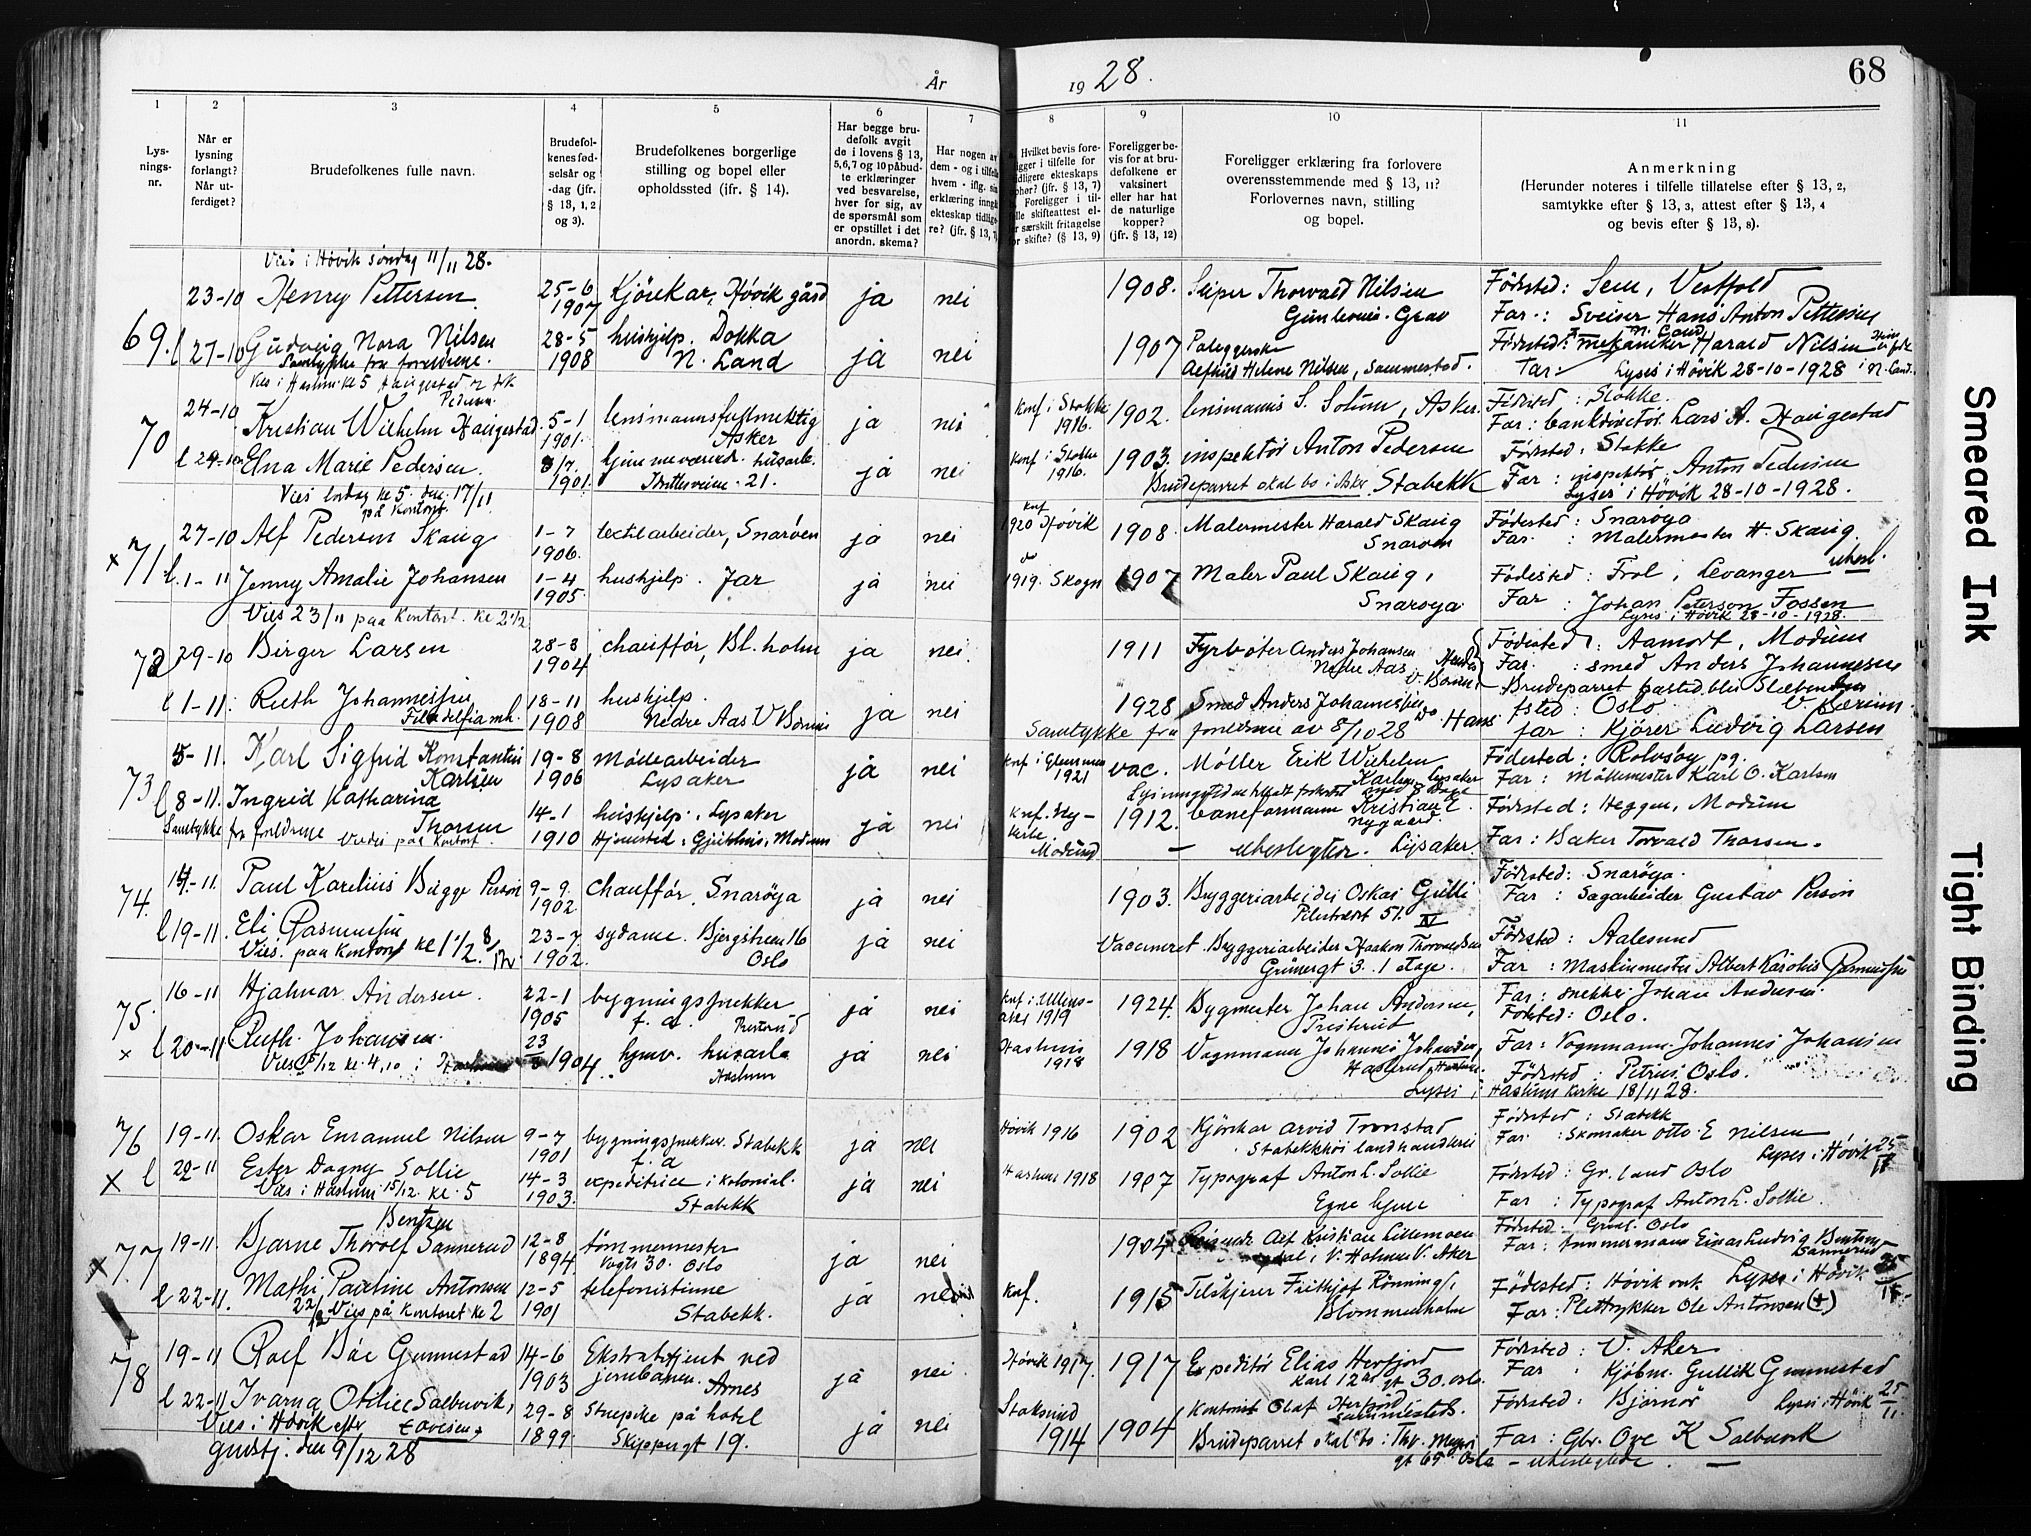 År
19 28.
68
1
Lys-
nings-
nr.
2
Når er
lysning
forlangt?
Når ut-
ferdiget?
3
Brudefolkenes fulle navn.
4
Brudefol-
kenes fød-
selsår og
-dag (jfr.
§ 13, 1, 2
og 3).
5
Brudefolkenes borgerlige
stilling og bopel eller
opholdssted (jfr. § 14).
6
Har begge bru-
defolk avgit
de i lovens § 13,
5,6,7 og 10 påbud-
te erklæringer
ved besvarelse,
hver for sig, av
de spørsmål som
er opstillet i det
anordn. skema?
7
Har nogen av
dem - og i tilfelle
hvem - iflg. sin
erklæring inngått
ekteskap tidlige-
re? (jfr. § 13,
8
Hvilket bevis fore-
ligger i tilfelle for
tidligere ekteskaps
ophør? (jfr. § 13, 7)
Foreligger i til-
felle skifteattest el-
ler særskilt fritagelse
for skifte? (§ 13, 9)
9
Foreligger be-
vis for at bru-
defolkene er
vaksinert
eller har hat
de naturlige
kopper?
(jfr. § 13, 12)
10
Foreligger erklæring fra forlovere
overensstemmende med § 13, 11?
Forlovernes navn, stilling
og bopel.
11
Anmerkning
(Herunder noteres i tilfelle tillatelse efter § 13, 2,
samtykke efter § 13, 3, attest efter § 13, 4
og bevis efter § 13, 8).
Vies i Høvik søndag 11/11 28.
69. 23-10 Henry Pettersen 25-6 1907 Kjørekar, Høvik gård ja nei 1908. Thorvald Nilsen
Fødested: Sem, Vestfold
Far: Sveiser Hans Anton Pettersen
l 27-10 Gudveig Nora Nilsen 28-5 1908 hushjelp. Dokka N. Land ja nei 1907 Helene Nilsen,
Samtykke fra foreldrene.
Fødested: N. Land
Far: mekaniker Harald Nilsen
Lyses i Høvik 28-10-1928
70 24-10 Kristian Wilhelm Haugestad 5-1 1901 lensmannsfullmektig Asker ja nei Konf i Stokke 1916. 1902. lensmann S. Solum, Asker.
Fødested: Stokke.
Far: bankdirektør Lars A. Haugestad
l Elna Marie Pedersen. 8/7. 1901. Idrettsveien 21. ja nei Konf i Stokke 1916. 1903. inspektør Anton Pedersen
Brudeparret skal bo i Asker. Stabekk
Fødested: Stokke
Far: inspektør Anton Pedersen
Lyses i Høvik 28-10-1928.
Vies lørdag kl 5 den 17/11
på kontoret.
x 71 27-10 Alf Pedersen Skaug 1-7 1906. textilarbeider, Snarøen ja nei Konf 1920 Høvik 1908. Malermester Harald Skaug Snarøen
Fødested: Snarøya
Far: Malermester H. Skaug.
l. 1-11 Jenny Amalie Johansen 1-4 1905. hushjelp. Jar ja nei do 1919. Skogn 1907 Maler Paul Skaug, Snarøya
Fødested: Frol, Levanger ubesl.
Far: Johan Peterson Fossen
Lyses i Høvik 28-10-1928.
Vies 23/11 paa Kontoret. Kl 2 1/2
72 29-10 Birger Larsen 28-8 1904 chauffør, Bl. holm ja nei 1911 Fyrbøter Anders Johansen Nedre Aas
Fødested: Aamodt, Modum
Far: smed Anders Johannesen
l 1-11 Ruth Johannessen 18-11 1908 hushjelp. Nedre Aas V Bærum ja nei 1928 Smed Anders Johannessen
Filadelfia mh.
Samtykke fra foreldrene av 8/10 28
fsted: Oslo
far: Kjører Ludvig Larsen
73 5-11. Karl Sigfrid Konstantin Karlsen 19-8 1906 Møllearbeider Lysaker ja nei Konf i Glemmen 1921 vac. Møller Erik Wilhelm Karlsen, Lysaker
Fødested: Rolvsøy pg.
Far: Møllemester Karl O. Karlsen
l 8-11. Ingrid Katharina Thorsen 14-1 1910 hushjelp, Lysaker ja nei 1912. baneformann Kristian E. Nygaard.
Samtykke fra foreldrene
Hjemsted: Modum
ubeslegtet. Lysaker
Fødested: Heggen, Modum
Far: Baker Torvald Thorsen.
74. 14-11. Paul Karelius Bugge Person 9-9. 1902 Chauffør, Snarøya ja nei 1903. Bryggeriarbeider Oskar Gulli Pilestrædet 51. IV
Fødested: Snarøya.
Far: Sagarbeider Gustav Person
l 19-11. Eli Rasmussen 23-7 1902. sydame. Oslo ja nei Vaccineret Bryggeriarbeider Haakon Thorvaldsen
Vies. paa Kontoret kl 1 1/2 8/12
Grünergt 3. 1 etage.
Fødested: Aalesund
Far: Maskinmester Albert Karolius Rasmussen
75. 16-11 Hjalmar Andersen. 22-1 1905 bygningssnekker f. a. Presterud ja nei Konf i Ullensaker 1919 1924. Bygmester Johan Andersen, Presterud
Far: snekker Johan Andersen.
Fødested: Oslo.
x l 20-11 Ruth Johansen. 23 1904. hjmv. husarb. Haslum ja nei Haslum 1918 1918 Vognmann Johannes Johansen,
Vies 5/12 kl. 4,10 i
Far: Vognmann Johannes Johansen
Fødested: Petrus, Oslo.
Lyses i Haslum kirke 18/11 28.
76 19-11. Oskar Emanuel Nilsen 9-7 1901 bygningssnekker. Stabekk f. a ja nei Høvik 1916 1902 Kjørekar Arvid Tronstad Stabekkhøi landhandleri
Fødested: Stabekk
Far: Skomaker Otto E Nilsen
Lyses i Høvik 25/11
x l 20-11 Ester Dagny Sollie 14-3 1903. expeditrice i kolonial. Stabekk ja nei Haslum 1918 1907 Typograf Anton L. Sollie Egne hjem
Vies i Haslum 15/12. kl. 5
Fødested: Gr. land Oslo
Far: Typograf Anton L. Sollie.
Bentzen
x 77 19-11. Bjarne Thorolf Sannerud 12-8 1894 tømmermester Vogts 30. Oslo ja nei 1904 Alf Kristian Lillemoen V. Aker
Fødested: Oslo
Far: tømmermann Einar Ludvig Bentzen Sannerud
l 22-11. Mathi Pauline Antonsen 12-5 1901 telefonistinne Stabekk. ja nei Knf. 1915 Tilskjærer Frithjof Rønning, Blommenholm
22/12 Vies på Kontoret kl 2
Fødested: Høvik verk Lyses i Høvik 25/11
Far: Plettrykker Ole Antonsen (+)
78 19-11 Rolf Bäe Gunnestad 14-6 1903 Ekstrabetjent ved jernbanen. Arnes ja nei Høvik 1917. 1917 Expeditør Elias Herfjord Karl 12tes gt 30. Oslo
Fødested: V. Aker
Far: Kjøbm. Gullik Gunnestad
l 22-11 Ivarna Otilie Salbuvik, 29-8 1899 Stuepike på hotel Skippergt 19. ja nei Stoksund 1914 1904 Kontorist Olaf Herfjord
Vies i Høvik efter
gudstj. den 9/12 28
Brudeparret skal bo i Thv. Meyers gt 65 Oslo
Fødested: Bjørnør Lyses i Høvik 25/11.
Far: Gbr. Ove K Salbuvik
- ubeslegtede. -
Smeared Ink
Tight Binding